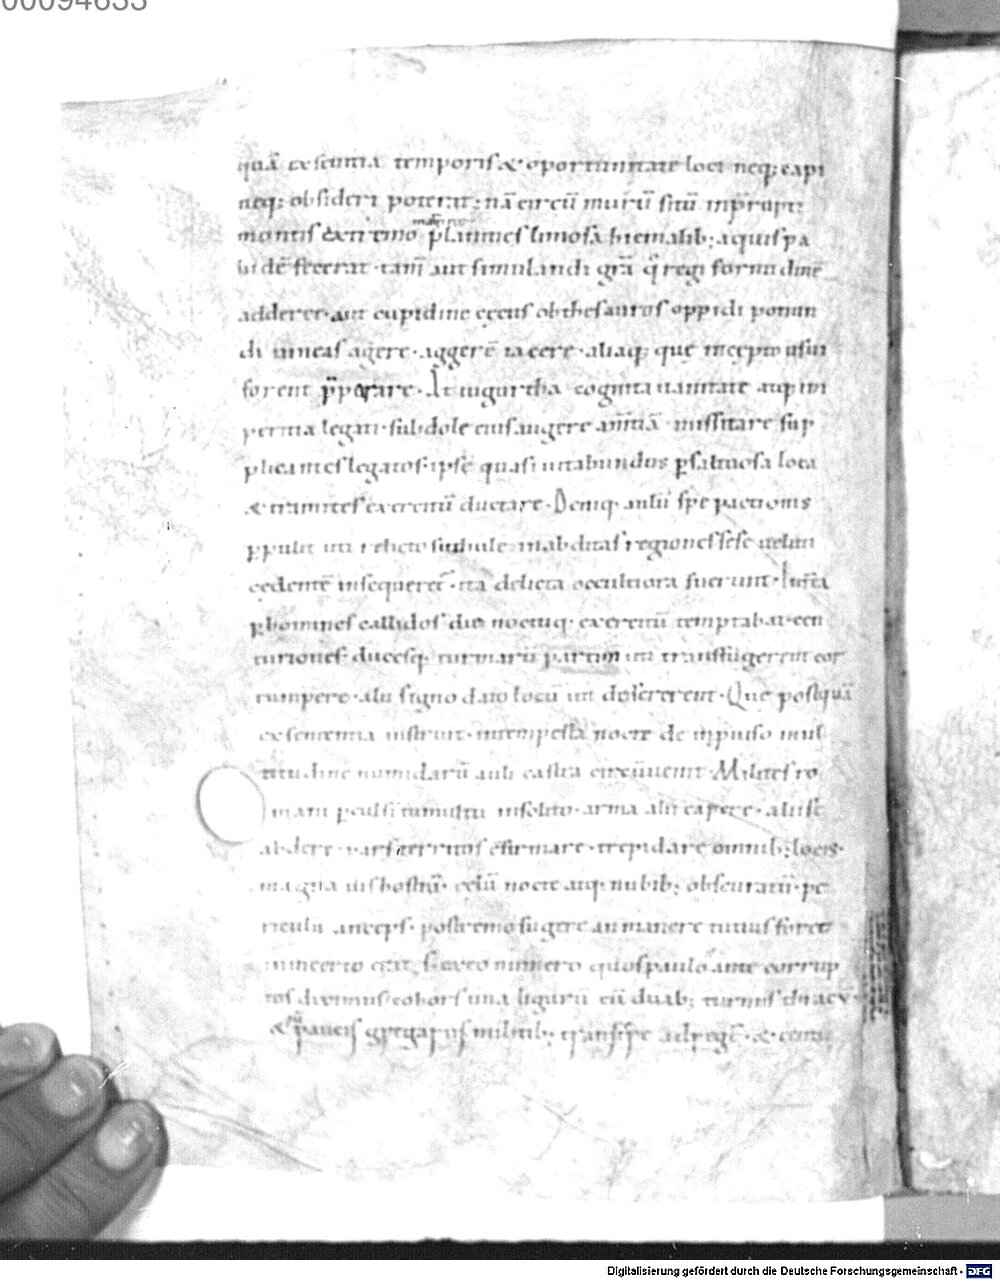 00094633
quā & scientia temporis & oportunitate loci neq; capi
neq; obsideri poterat; nā circū murū sitū inp̄rupti
montis extremo planities limosa hiemalib; aquis pa
ludē fecerat tam̄ aut simulandi grā q̄ regi formidinē
adderet aut cupidine cęcus ob thesauros oppidi potiun
di uineas agere · aggerē iacere · aliaq; que incepto usui
forent p̄perare · At iugurtha cognita uanitate atq; im
peritia legati · subdole eius augere amītiā · missitare sup
plicantes legatos · ipse quasi uitabundus p saltuosa loca
& tramites exercitū ductare · Deniq; aulū spe pactionis
ppulit uti relicto suthule in abditas regiones sese ueluti
cedentē insequeret̄ · ita delicta occultiora fuerunt · Int̄ea
p homines callidos die noctuq; exercitū temptabat · cen
turiones ducesq; turmarū partim uti transfugerent cor
rumpere · alii signo dato locū uti desererent · Que postquā
ex sententia instruit · intempesta nocte de inprouiso mul
titudine numidarū auli castra circūuenit · Milites ro
mani pculsi tumultu insolito · arma alii capere · alii se
abdere · pars territos cfirmare · trepidare omnib; locis ·
magna uis hostiū · celū nocte atq; nubib; obscuratū · pe
riculū anceps · postremo fugere an manere tutius foret
in incerto erat · s; ex eo numero quos paulo ante corrup
tos diximus cohors una ligurū cū duab; turmis thracū ·
& paucis gregariis militib; transire ad regē · & centu
Digitalisierung gefördert durch die Deutsche Forschungsgemeinschaft - DFG